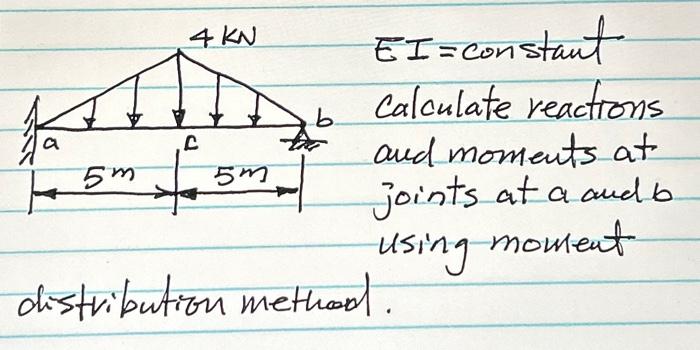 4 KN
EI = constant
a
c
b
5m
5m
Calculate reactions
and moments at
joints at a and b
using moment
distribution method.